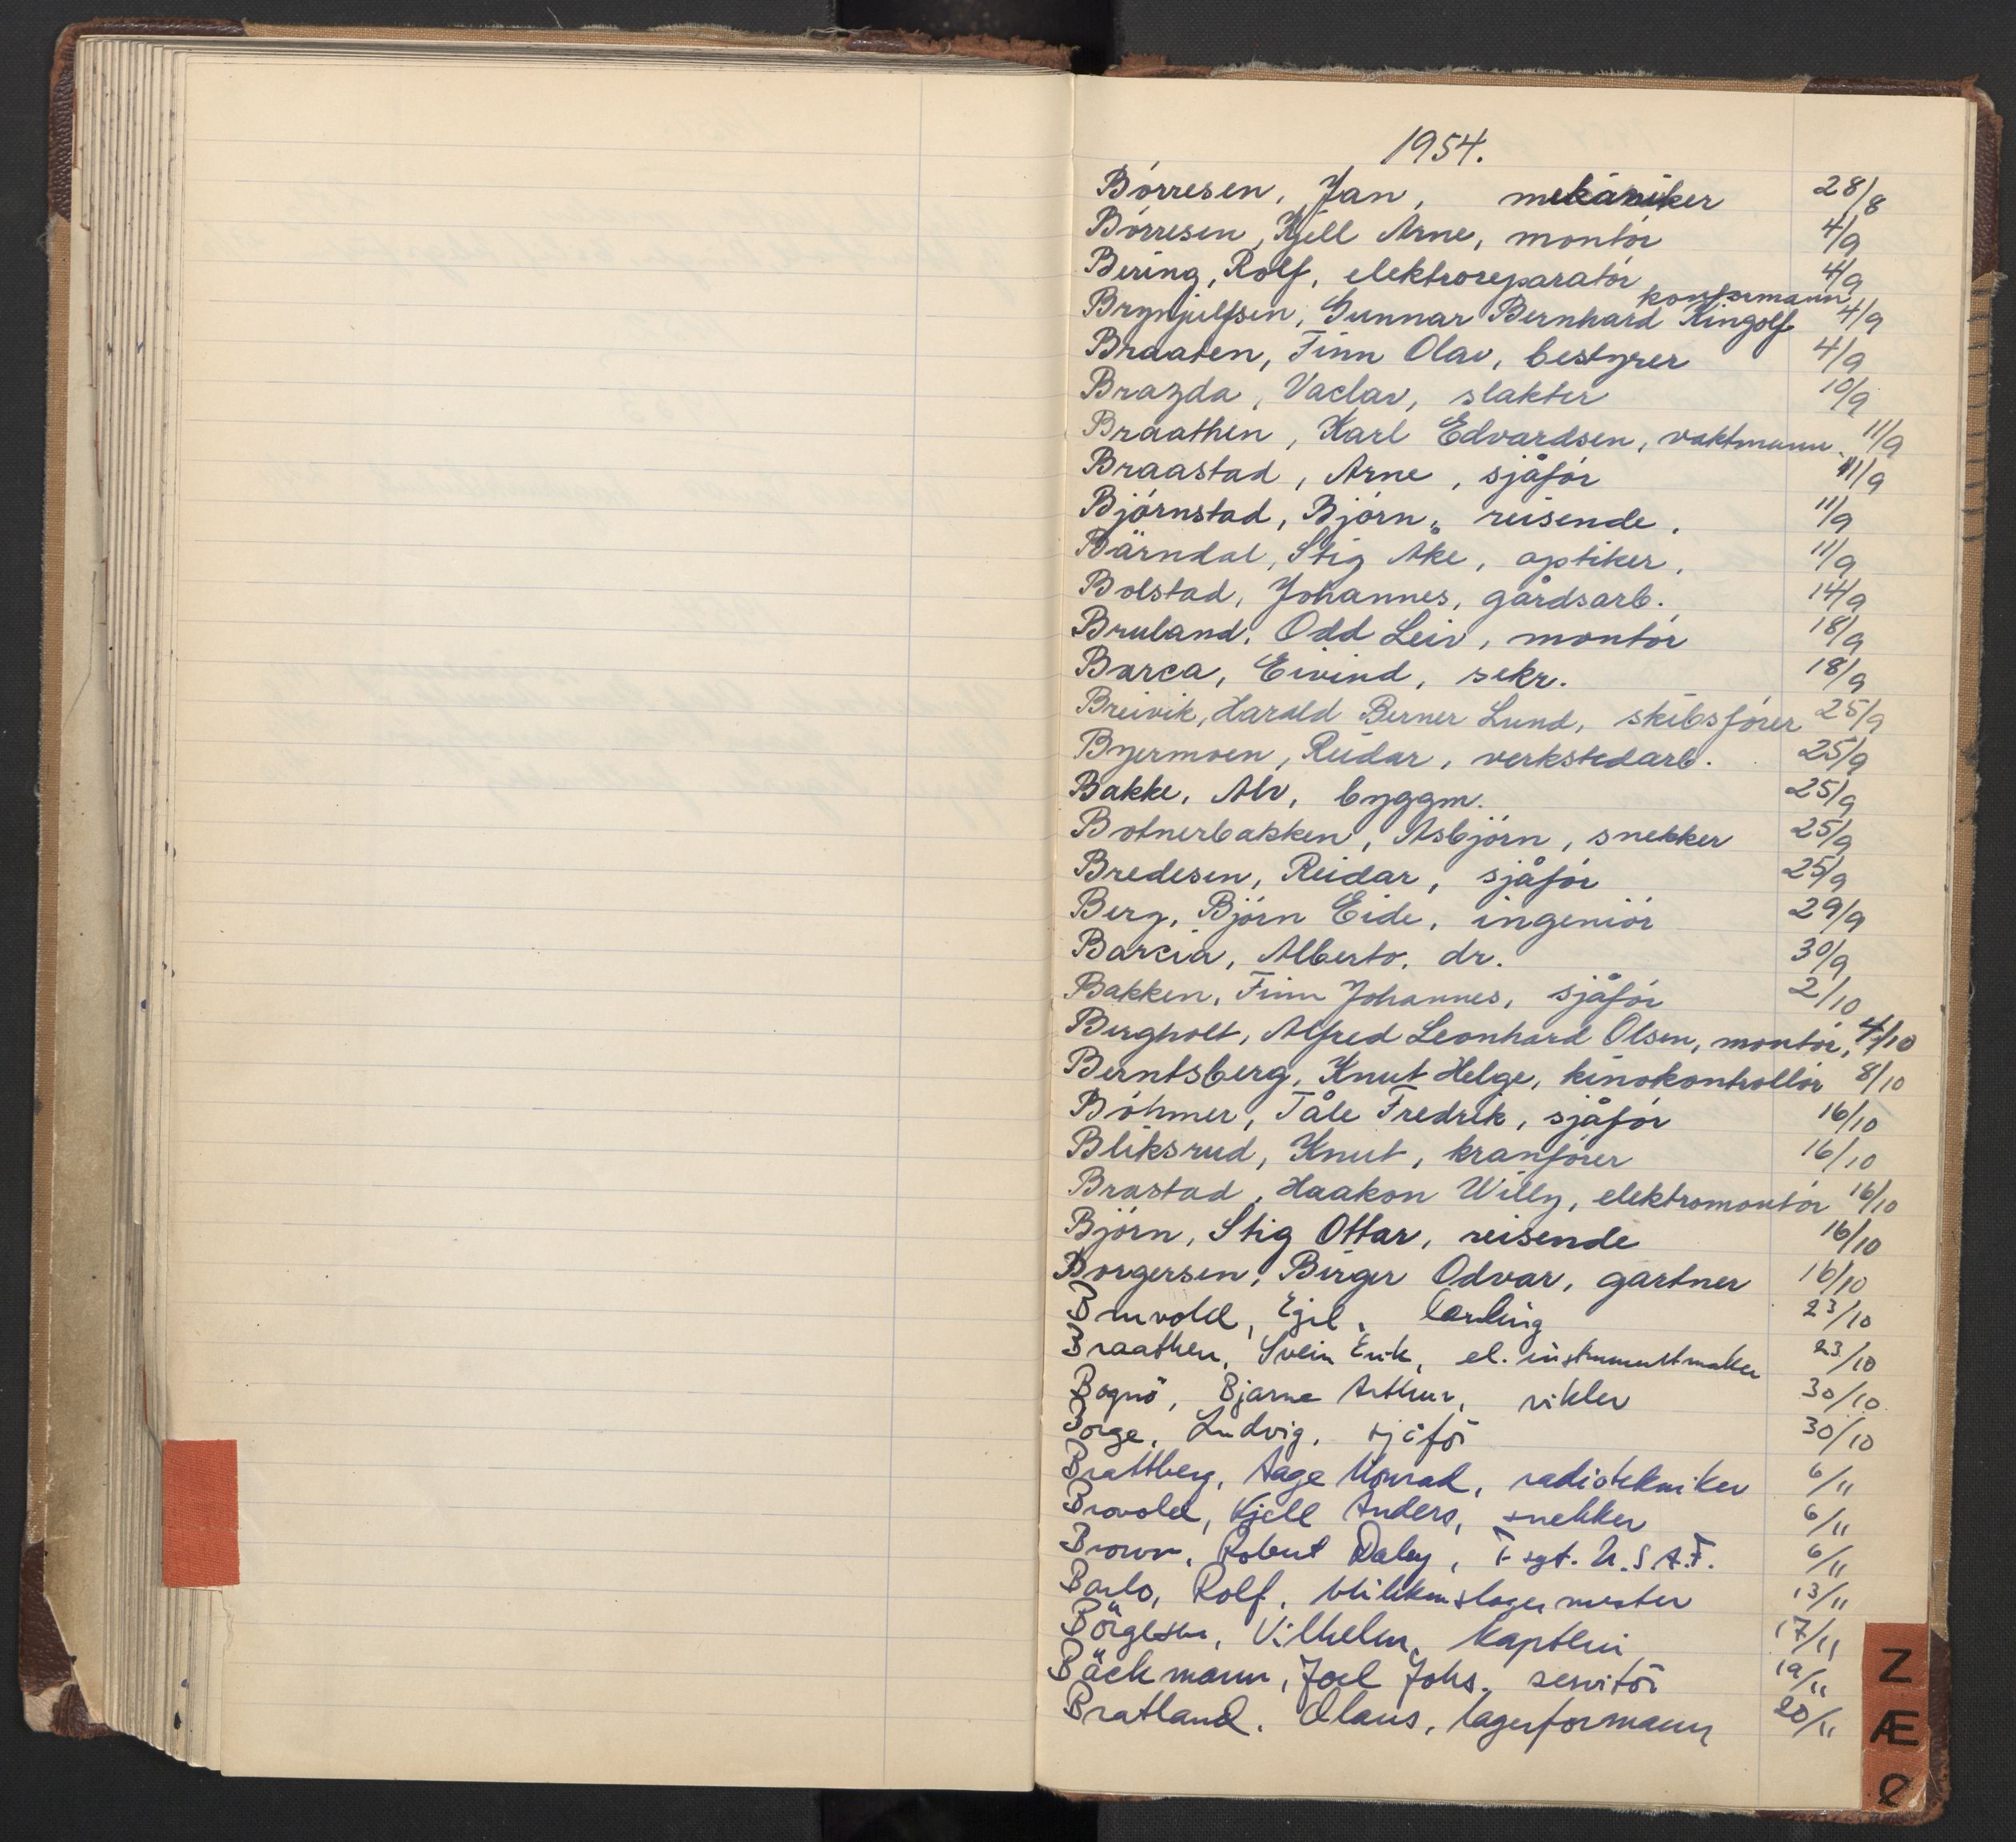 1954.
Börresen, Jan, mekaniker 28/8
Börresen, Kjell Arne, montör 4/9
Bering, Rolf, elektroreparatör 4/9
kontormann
Brynjulfsen, Gunnar Bernhard Ringolf 4/9
Braaten, Finn Olav, bestyrer 4/9
Brazda, Vaclav, slakter 10/9
Braathen, Karl Edvardsen, vaktmann. 11/9
Braastad, Arne, sjåför 11/9
Björnstad, Björn, reisende. 11/9
Bärndal, Stig Åke, optiker. 11/9
Bolstad, Johannes, gårdsarb. 14/9
Bruland, Odd Leiv, montör 18/9
Barca, Eivind, sekr. 18/9
Breivik, Harald Berner Lund, skibsförer 25/9
Byermoen, Reidar, verkstedarb. 25/9
Bakke, Alv, byggm. 25/9
Botnerbakken, Asbjörn, snekker 25/9
Bredesen, Reidar, sjåför 25/9
Berg, Björn Eide, ingeniör 29/9
Barcia, Alberto, dr. 30/9
Bakken, Finn Johannes, sjåför 2/10
Bergholt, Alfred Leonhard Olsen, montör, 4/10
Berntsberg, Knut Helge, kinokontrollör 8/10
Böhmer, Tåle Fredrik, sjåför 16/10
Bliksrud, Knut, kranförer 16/10
Brastad, Haakon Willy, elektromontör 16/10
Björn, Stig Ottar, reisende 16/10
Borgersen, Birger Odvar, gartner 16/10
Bruvold, Egil, lærling 23/10
Braathen, Svein Erik, el. instrumentmaker 23/10
Bognö, Bjarne Arthur, vikler 30/10
Borge, Ludvig, sjåför 30/10
Brattberg, Aage Konrad, radiotekniker 6/11
Brovold, Kjell Anders, snekker 6/11
Brown, Robert Daley, T sgt. U.S.A.F. 6/11
Barlo, Rolf, blikkenslagermester 13/11
Börgesen, Vilhelm, kaptein 17/11
Bäckmann, Joel Johs. servitör 19/11
Bratland, Olaus, lagerformann 20/11
Z
Æ
Ø